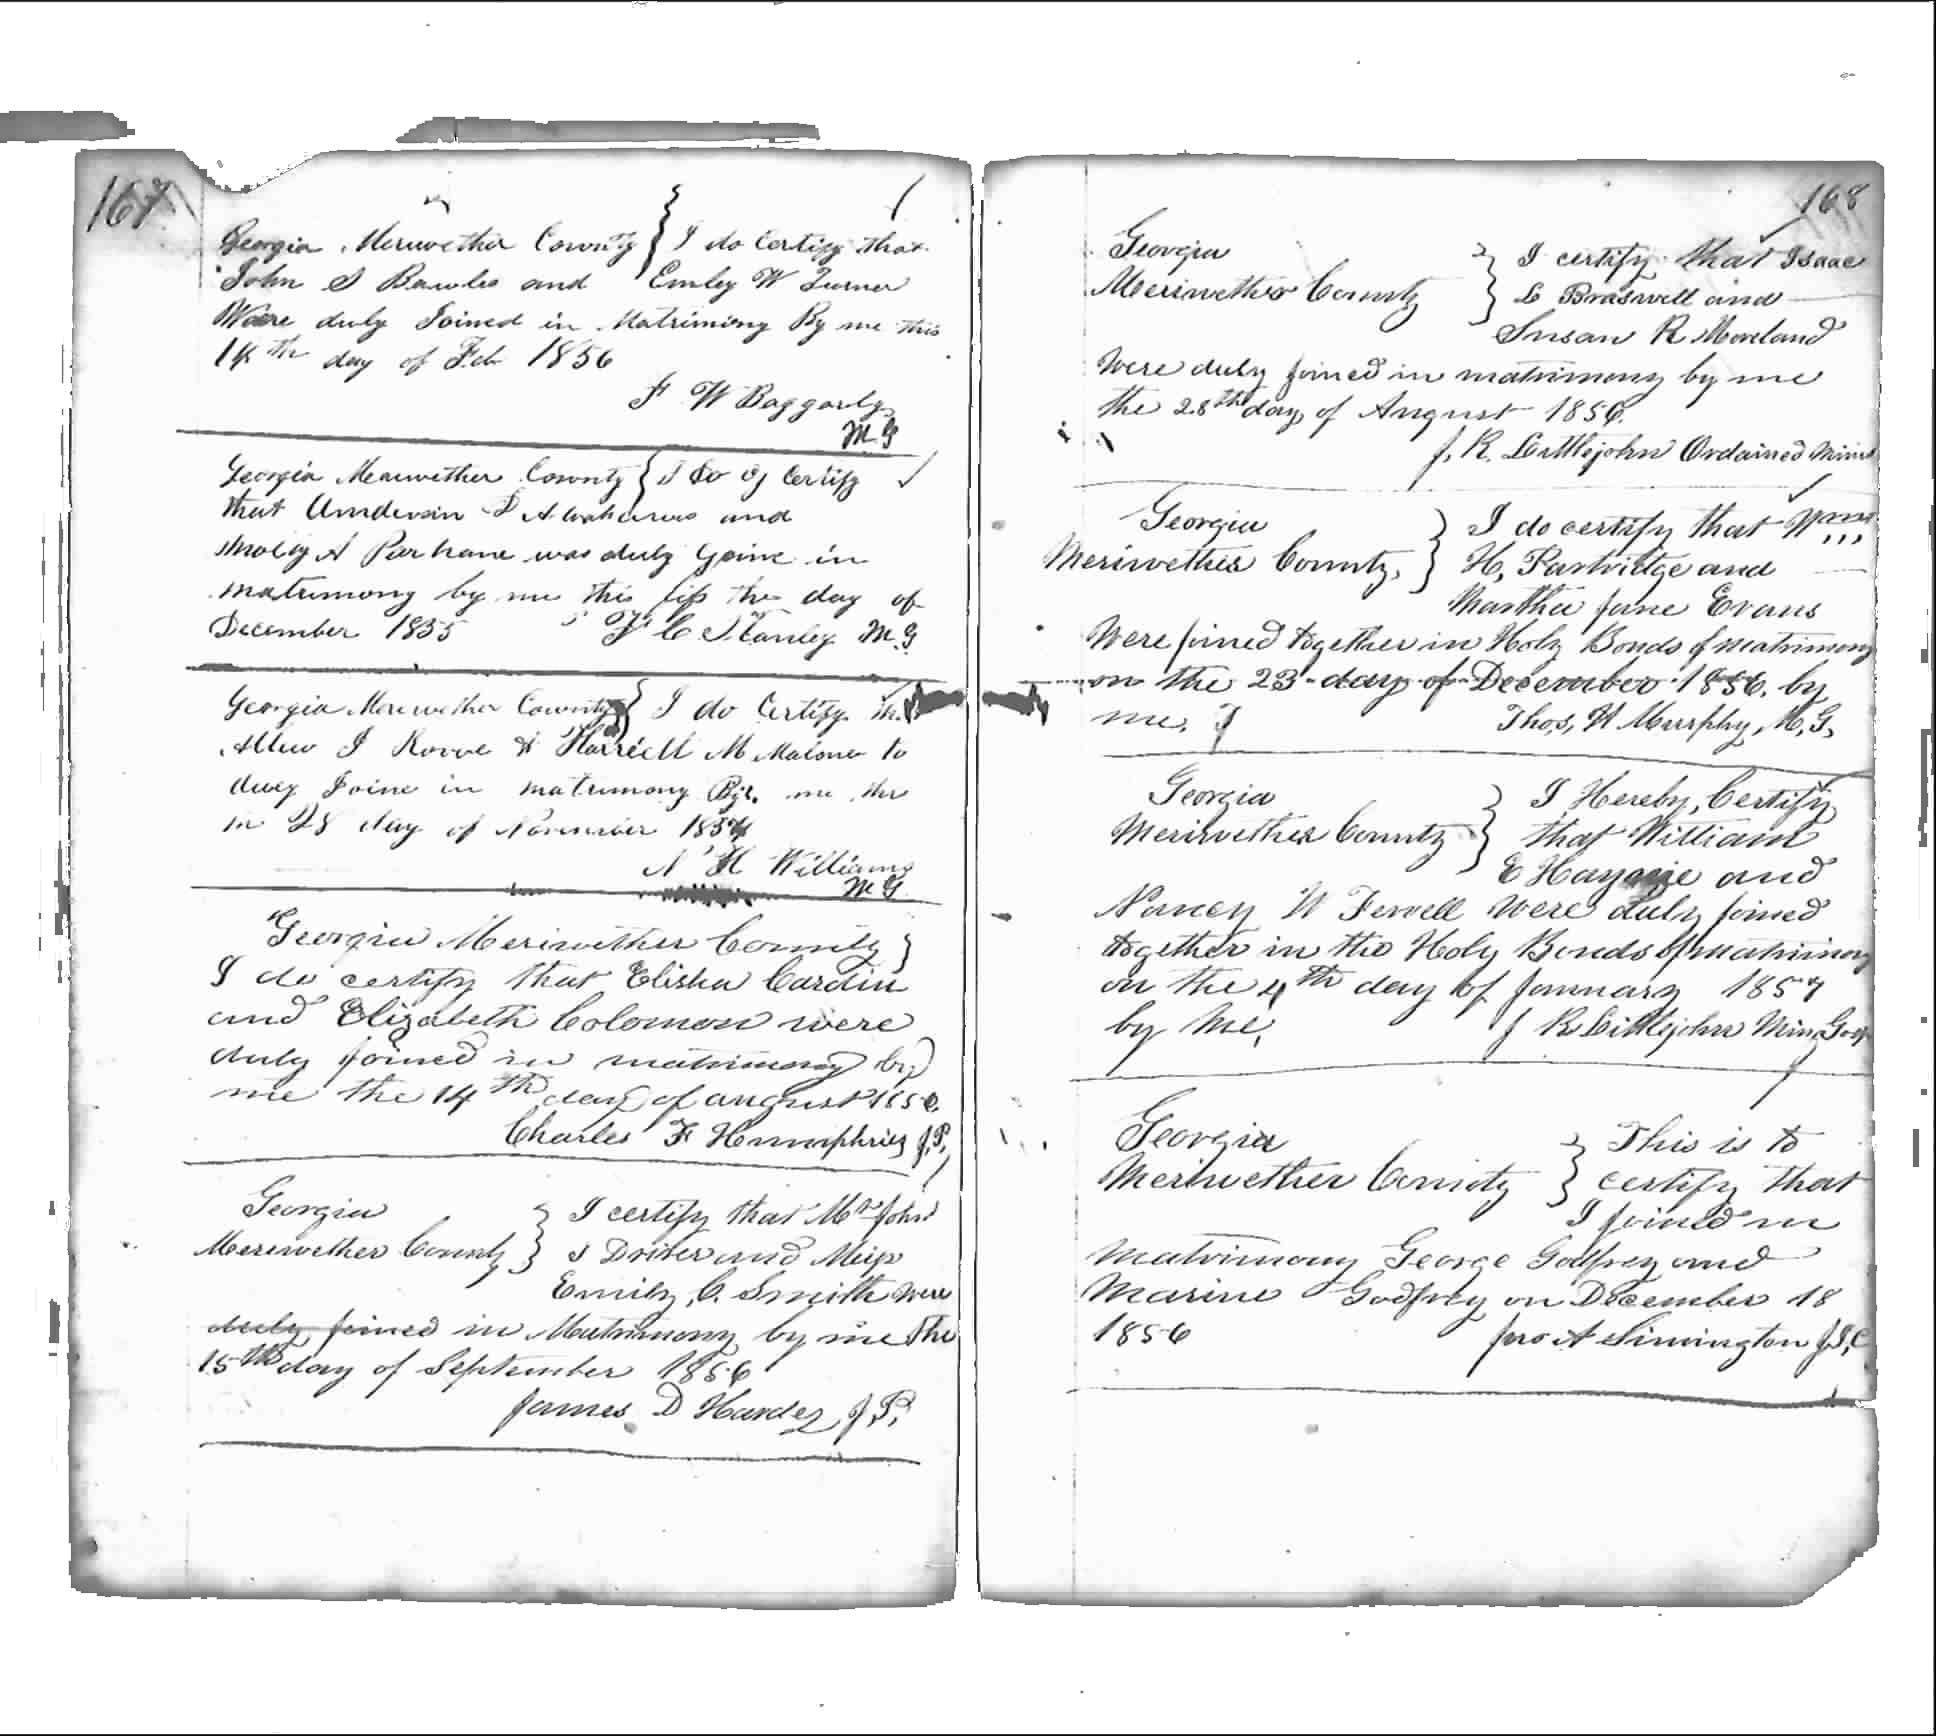 167
Georgia Meriwether County } I do Certify that
John S Bowles and Emley W Turner
Were duly Joined in Matrimony By me this
14th day of Feb 1856
F W Baggarly
M.G
Georgia Meriwether County } I do Certify
that Anderson and
A Parham was duly Goine in
matrimony by me this the day of
December 1855 F C Stanley M.G
Georgia Meriwether County } I do Certify
I & Harriett M Malone to
duey Joine in matrimony By me the
28 day of November 1854
N H Williams
M G
Georgia Meriwether County }
I do certify that Elisha Cardin
and Elizabeth Colomon were
duly joined in matrimony by
me the 14th day of august 1856.
Charles F Humphries J.P.
Georgia } I certify that Mr John
Meriwether County } S Driver and Miss
Emily C. Smith were
duly joined in Matrimony by me the
15th day of September 1856
James D Hardez J.P.
168
Georgia } I certify that Isaac
Meriwether County } L Braswell and
Susan R Moreland
Were duly joined in matrimony by me
the 28th day of August 1856.
J. R. Littlejohn Ordained Minist
Georgia } I do certify that Wm
Meriwether County, } H, Partridge and
Martha Jane Evans
Were joined together in Holy Bonds of matrimony
on the 23 day of December 1856. by
me. Thos, H Murphy, M, G,
Georgia } I Hereby, Certify
Meriwether County } that William
E and
Nancy W Ferrell were duly joined
together in the Holy Bonds of matrimony
on the 4th day of January 1857
by Me, J R Littlejohn Min Gosp
Georgia } This is to
Meriwether County } certify that
I joined in
matrimony George Godfrey and
Marine Godfrey on December 18
1856 Jno A Simington J,I,C